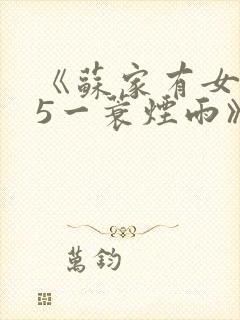 《蘇家有女
5一蓑煙雨》
萬鈞